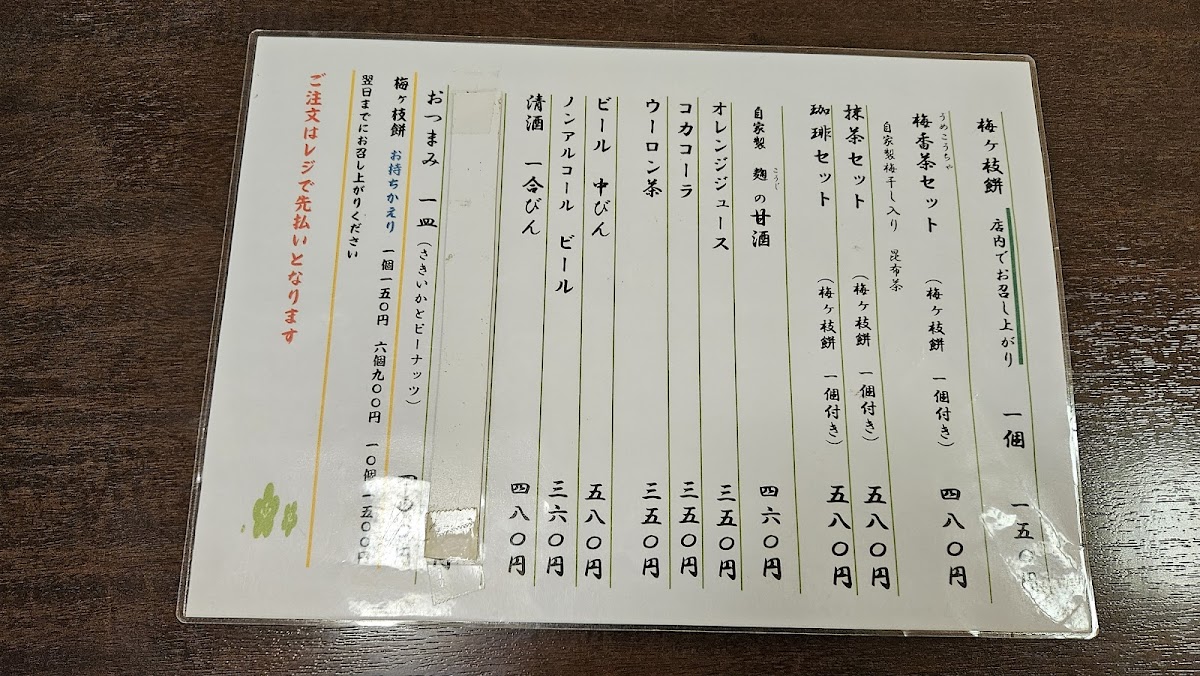 梅ヶ枝餅 店内でお召し上がり 一個 一五〇円
うめこうちゃ
梅香茶セット (梅ヶ枝餅 一個付き) 四八〇円
自家製梅干し入り 昆布茶
抹茶セット (梅ヶ枝餅 一個付き) 五八〇円
珈琲セット (梅ヶ枝餅 一個付き) 五八〇円
こうじ
自家製 麹の甘酒 四六〇円
オレンジジュース 三五〇円
コカコーラ 三五〇円
ウーロン茶 三五〇円
ビール 中びん 五八〇円
ノンアルコール ビール 三六〇円
清酒 一合びん 四八〇円
円
おつまみ 一皿 (さきいかとピーナッツ) 円
梅ヶ枝餅 お持ちかえり 一個一五〇円 六個九〇〇円 一〇個一五〇〇円
翌日までにお召し上がりください
ご注文はレジで先払いとなります